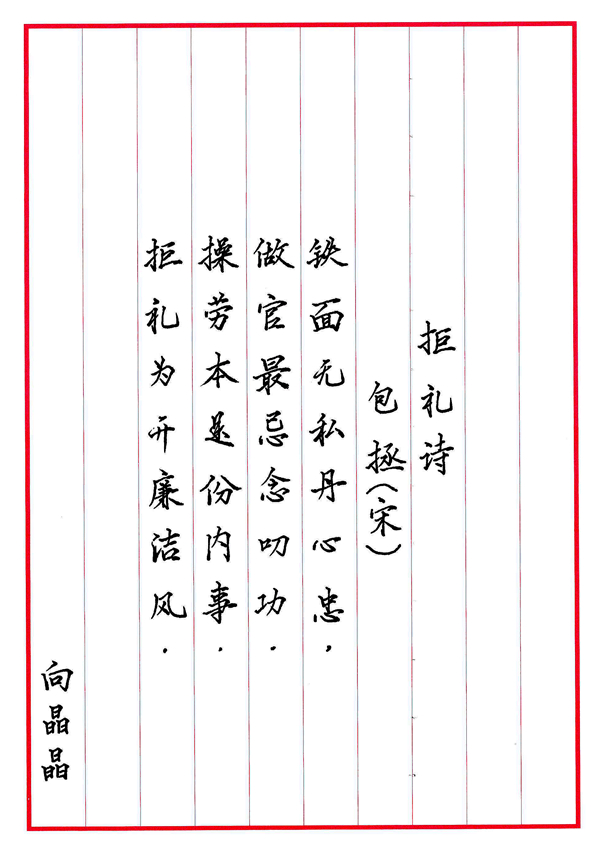 拒礼诗
包拯(宋)
铁面无私丹心忠，
做官最忌念叨功.
操劳本是份内事.
拒礼为开廉洁风.
向晶晶